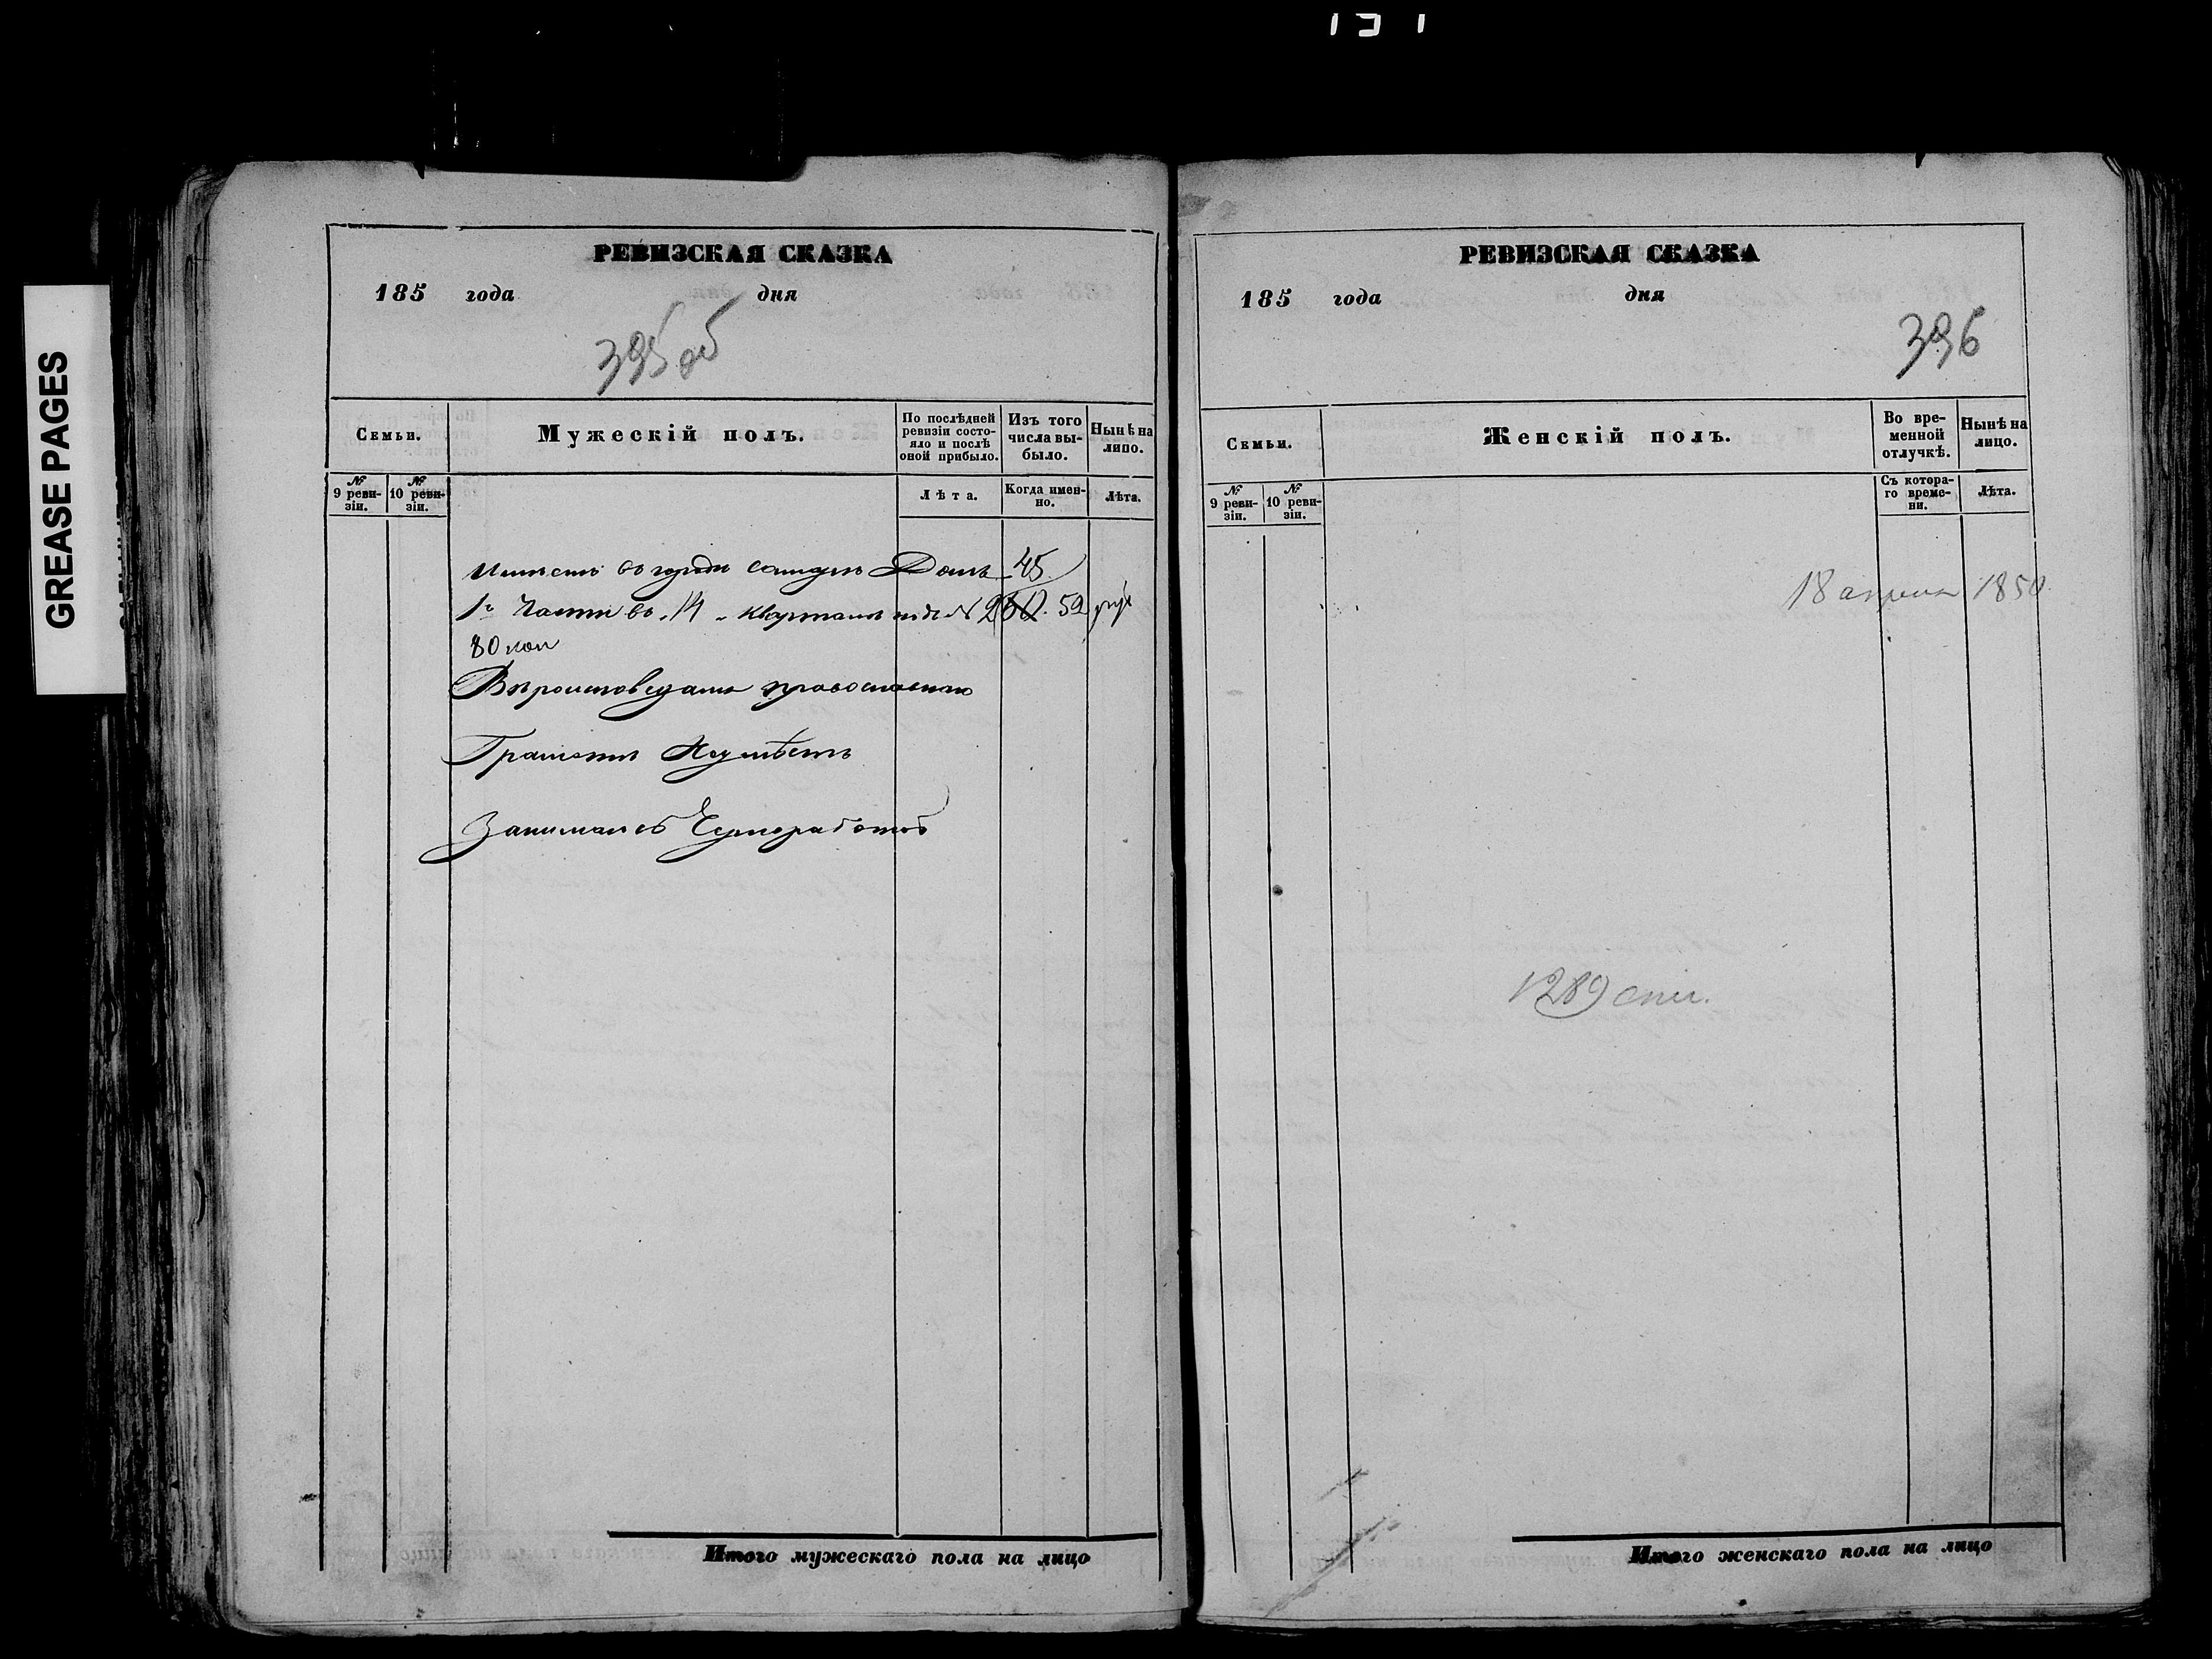 GREASE PAGES
РЕВИЗСКАЯ СКАЗКА
185 года дня
395 об
Семьи.
Мужескій полъ.
По послѣдней ревизіи состояло и послѣ оной прибыло.
Изъ того числа выбыло.
Нынѣ на лицо.
№ 9 ревизіи.
№ 10 ревизіи.
Лѣта.
Когда именно.
Лѣта.
Имѣетъ въ городѣ Домъ 45
1й Части въ 14 кварталѣ подъ № 52 руб
80 коп
Вѣроисповеданія православнаго
Грамотѣ Неумѣетъ
Итого мужескаго пола на лицо
РЕВИЗСКАЯ СКАЗКА
185 года дня
396
Семьи.
Женскій полъ.
Во временной отлучкѣ.
Нынѣ на лицо.
№ 9 ревизіи.
№ 10 ревизіи.
Съ котораго времени.
Лѣта.
18 апреля 1850
1289
Итого женскаго пола на лицо